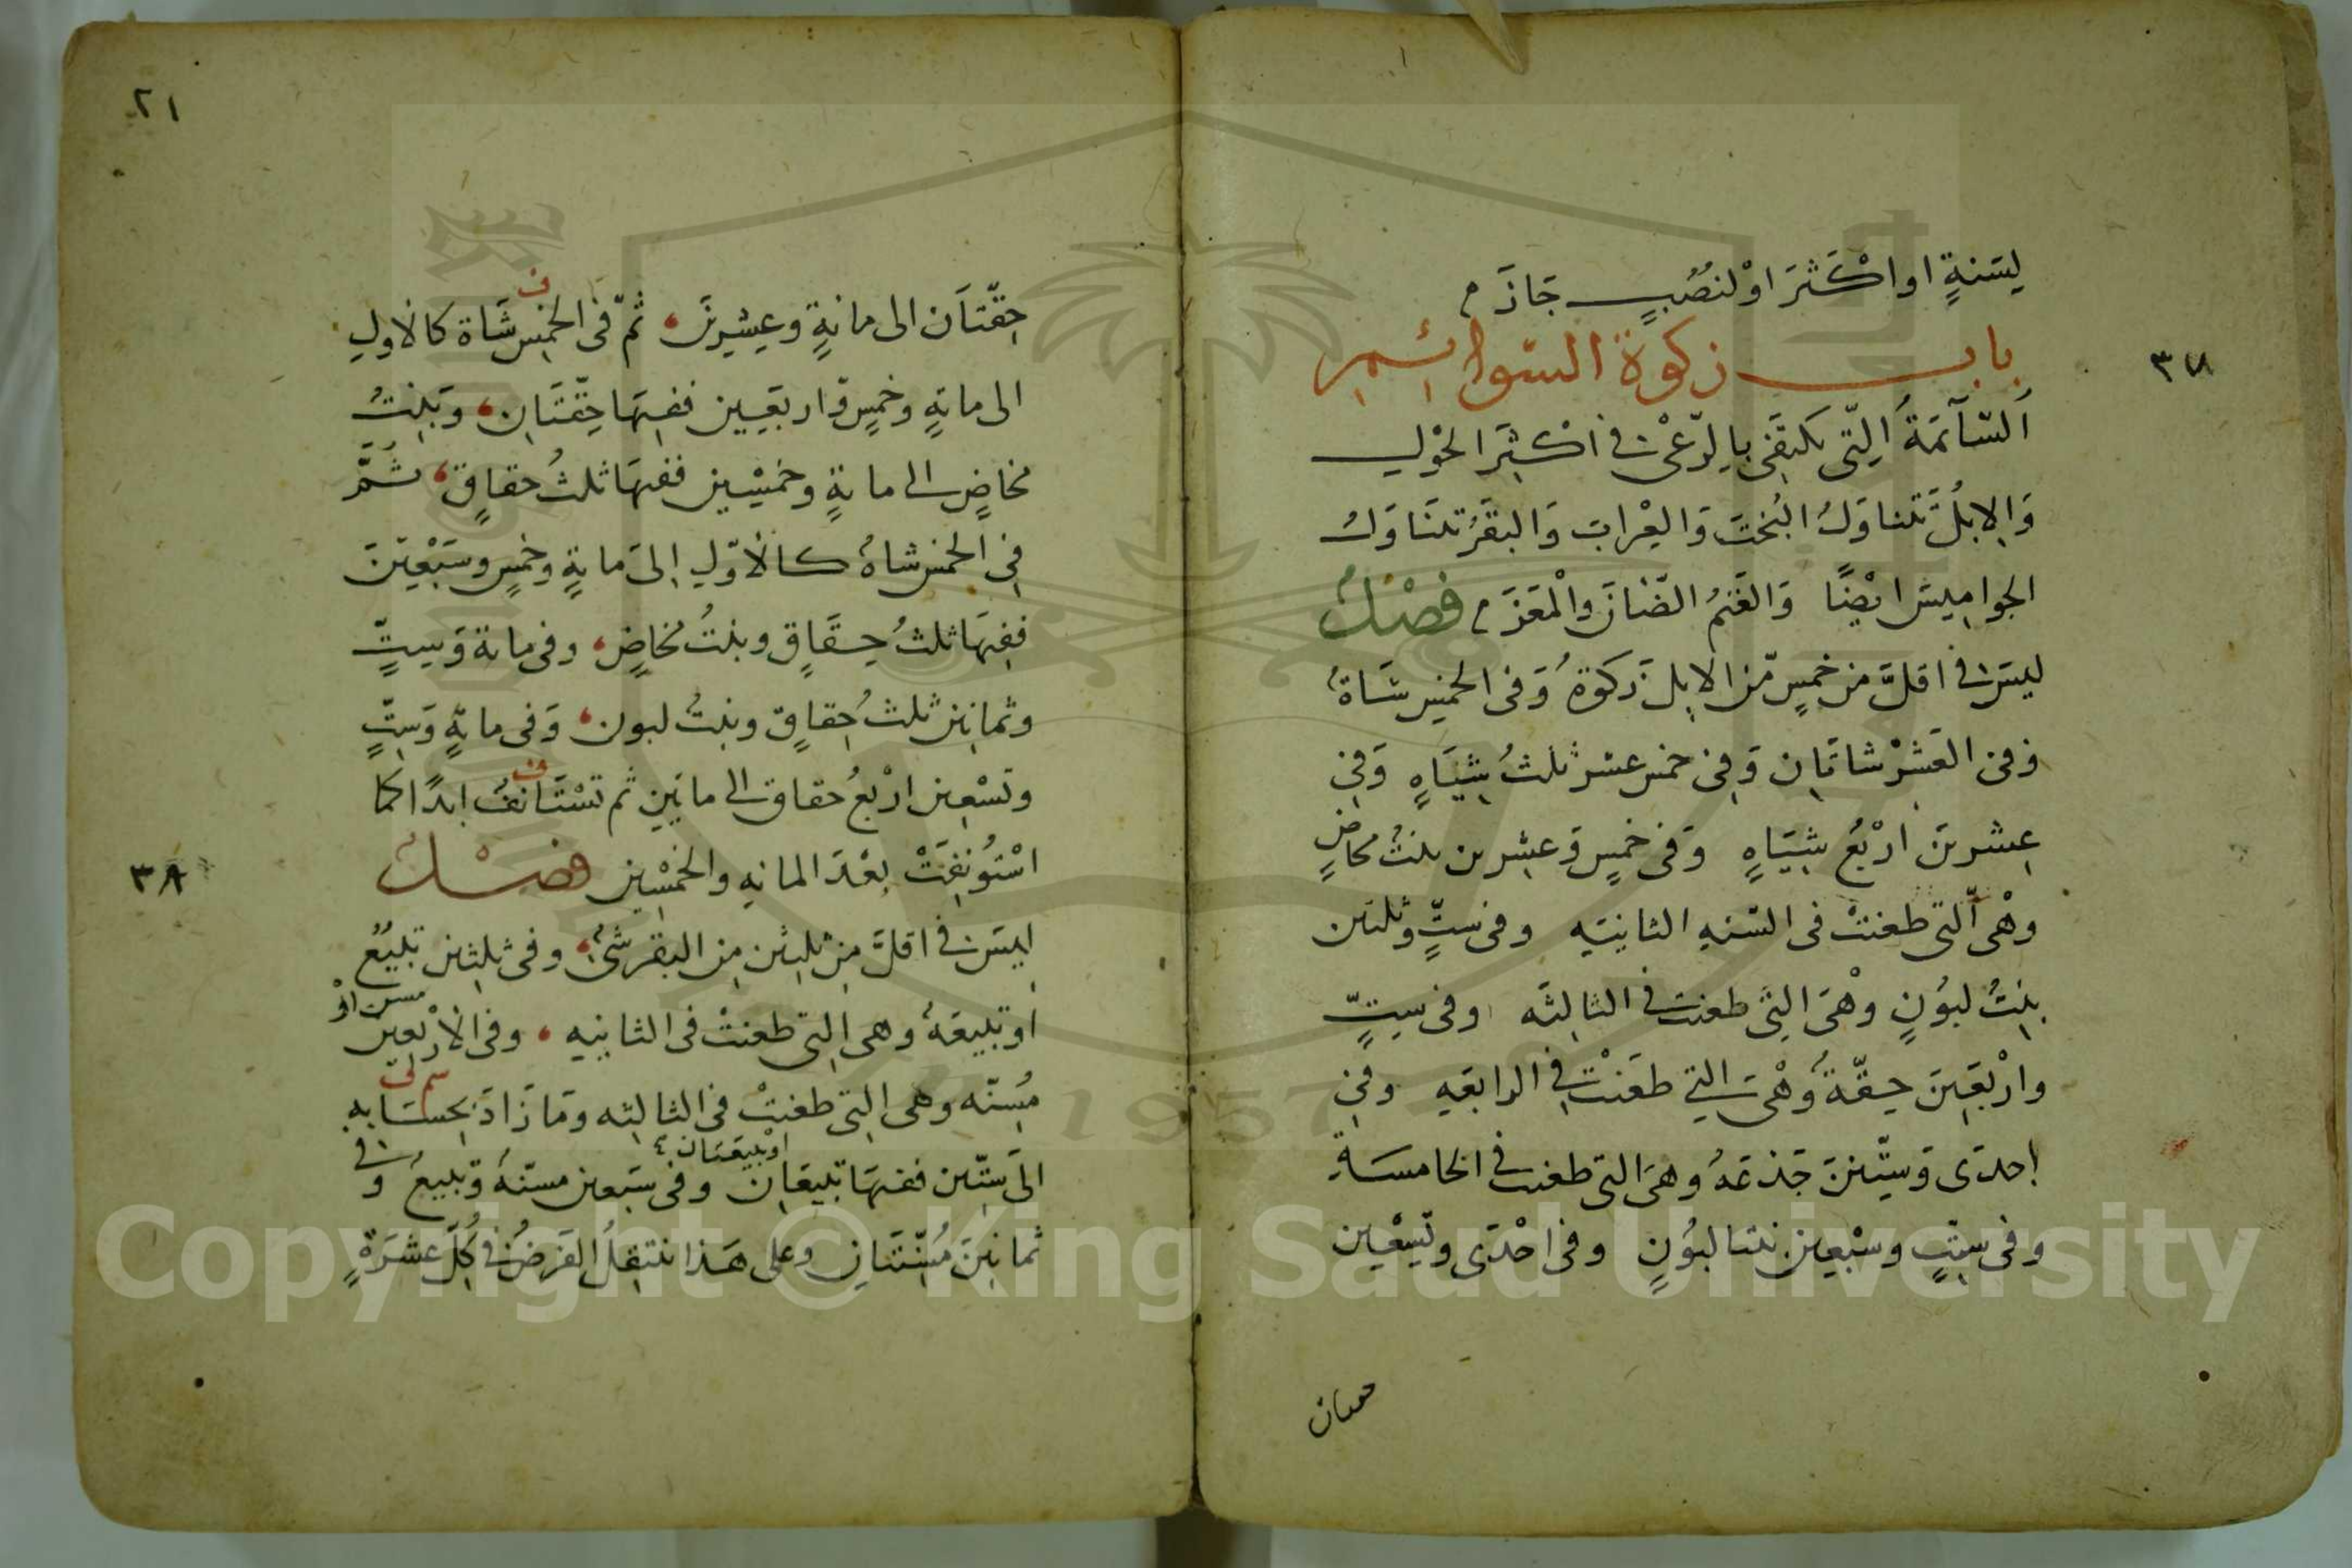 لِسَنةٍ او اكْثَرَ اوْ لنُصُبٍ جَازَ
٣٧
باب زكوة السّوائم
اَلسّآئمَةُ اَلِتّى تكتفى بِالرّعْى فى اكْثَرِ الحْوْلِ
وَالاِبِلُ تَتناوَلُ البُختَ وَالِعْرابَ وَالبقَرُ تتنَاوَلُ
الجوامِيسَ ايْضًا وَالغَنمُ الضّأنَ والْمَعَزَ فصْلٌ
ليسَ فى اقلَّ من خمسٍ مّن الابِلِ زَكوةٌ وَفى الخمسِ شَاةٌ
وَفى العَشْرِ شاتَانِ وَفِى خمس عشر ثلثُ شِيَاهٍ وَفِى
عِشرينَ ارْبَعُ شِيَاهٍ وَفى خمسٍ وَعشرين بنتُ مخاضٍ
وهْى الّتى طعنتْ فى السّنهِ الثانيَه وفى ستٍّ وثلثين
بِنتُ لبوُنٍ وهْىَ الِتى طعنت فى الثالِثَه وفى سِتٍّ
وارْبَعِينَ حِقّةٌ وهْىَ التِي طعَنتْ فِى الرابعَهِ وفِى
اِحدَى وَسِتّينَ جَذعَةٌ وهىَ التى طعنت فى الخامسَةِ
وفى سِتٍّ وسبْعِين بنتا لبوُنٍ وفى احْدَى وتِسْعِين
حقتان
٢١
حِقّتَان الى مائةٍ وعِشرِينَ ثمّ فى الخمس شَاة كالأولِ
ف
الى مائةٍ وخمسٍ وّاربَعِين ففيهَا حِقّتَانِ وَبِنتُ
مخاضٍ الى مائةٍ وخمْسِين ففيهَا ثلثُ حقاقٍ ثُمَّ
فِى الخمس شاةٌ كالأوّلِ اِلىَ مائةٍ وخمسٍ وسَبْعِينَ
ففِيهَا ثلثُ حِقَاقٍ وبنتُ مخاضٍ وفى مائة وَسِتٍّ
وثمانِين ثلثُ حِقاقٍ وبنتُ لبون وَفى مائةٍ وَسِتٍّ
وتسْعِين ارْبعُ حقاق الى مائتينِ ثم تسْتَانفُ ابدًا كما
ف
٣٨
اسْتُونِفَتْ بعْدَ المائهِ والخمْسِين فصْلٌ
ليسَ فى اقلَّ مِن ثلثين مِن البقر شئٌ وفى ثلثين تبيعٌ
اوتبيعَةٌ وهى التِى طعنتْ فى الثانيه وفى الأرْبَعِين
مسن اوْ
مُسِنّه وهى التى طعنتْ فى الثالِثه ومَا زَادَ بحِسَابهِ
الىَ سِتّين ففيهَا تبيعَانِ وفى سَبعين مسنّةٌ وّتبيعٌ وفى
اوْ تبيعَتان
ثمانينَ مُسِنّتَانِ وعلى هَذا ينتقِلُ الفَرضُ فى كُلِّ عشرَةٍ
٣٨
Copyright © King Saud University
1957